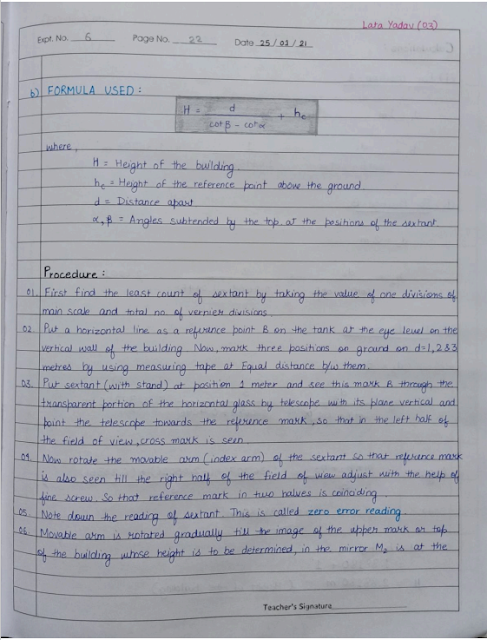 Lata Yadav (03)
Expt. No. 6 Page No. 22 Date 25/03/21
b) FORMULA USED :
H = d / cotβ - cotα + hc
where,
H = Height of the building.
hc = Height of the reference point above the ground
d = Distance apart
α, β = Angles subtended by the top at the positions of the sextant.
Procedure :
01. First find the least count of sextant by taking the value of one divisions of
main scale and total no. of vernier divisions.
02. Put a horizontal line as a reference point B on the tank at the eye level on the
vertical wall of the building Now, mark three positions on ground on d=1,2&3
metres by using measuring tape at Equal distance b/w them.
03. Put sextant (with stand) at position 1 meter and see this mark B through the
transparent portion of the horizontal glass by telescope with its plane vertical and
point the telescope towards the reference mark, so that in the left half of
the field of view, cross mark is seen
04. Now rotate the movable arm (index arm) of the sextant so that reference mark
is also seen till the right half of the field of view adjust with the help of
fine screw. So that reference mark in two halves is coinciding.
05. Note down the reading of sextant. This is called zero error reading.
06. Movable arm is rotated gradually till the image of the upper mark or top
of the building whose height is to be determined, in the mirror M2 is at the
Teacher's Signature